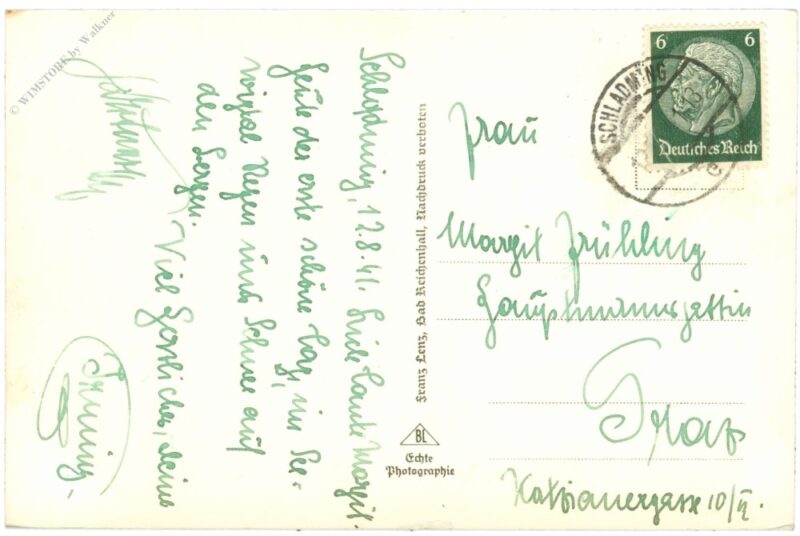 © WIMSTORE by Walkner
Schladming, 12.8.41. Liebe Tante Margit.
Heute der erste schöne Tag, in See-
wigtal Regen und Schnee auf
den Bergen.
Viel Herzliches, deine
Franz Lenz, Bad Reichenhall, Nachdruck verboten
BL
Echte
Photographie
6 6
Deutsches Reich
SCHLADMING
Frau
Margit Frühling
Hauptmannsgattin
Graz
Kalchauergasse 10/II.